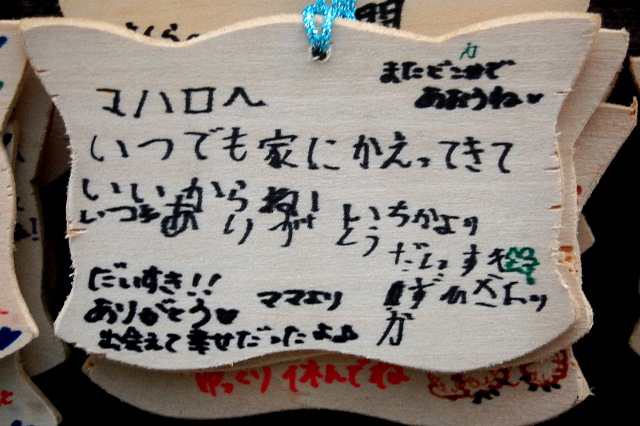 マハロへ
またどこかで
あおうね♥
いつでも家にかえってきて
いいからね!
いつも ありがとう
ちかより
だいすき
だいすき!!
ありがとう♥
出会えて幸せだったよ♪
ママより
ゆっくり休んでね